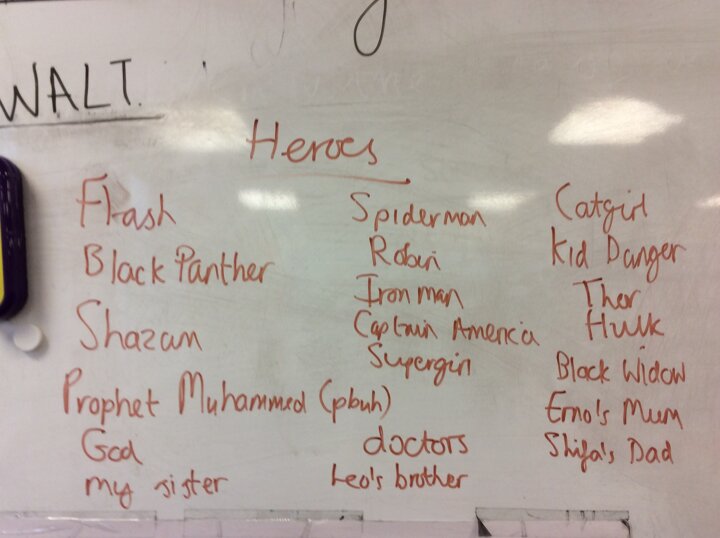 WALT.
Heroes
Flash
Black Panther
Shazam
Prophet Muhammed (pbuh)
God
my sister
Spiderman
Robin
Iron man
Captain America
Supergirl
doctors
Leo's brother
Catgirl
Kid Danger
Thor
Hulk
Black Widow
Erno's Mum
Shifa's Dad